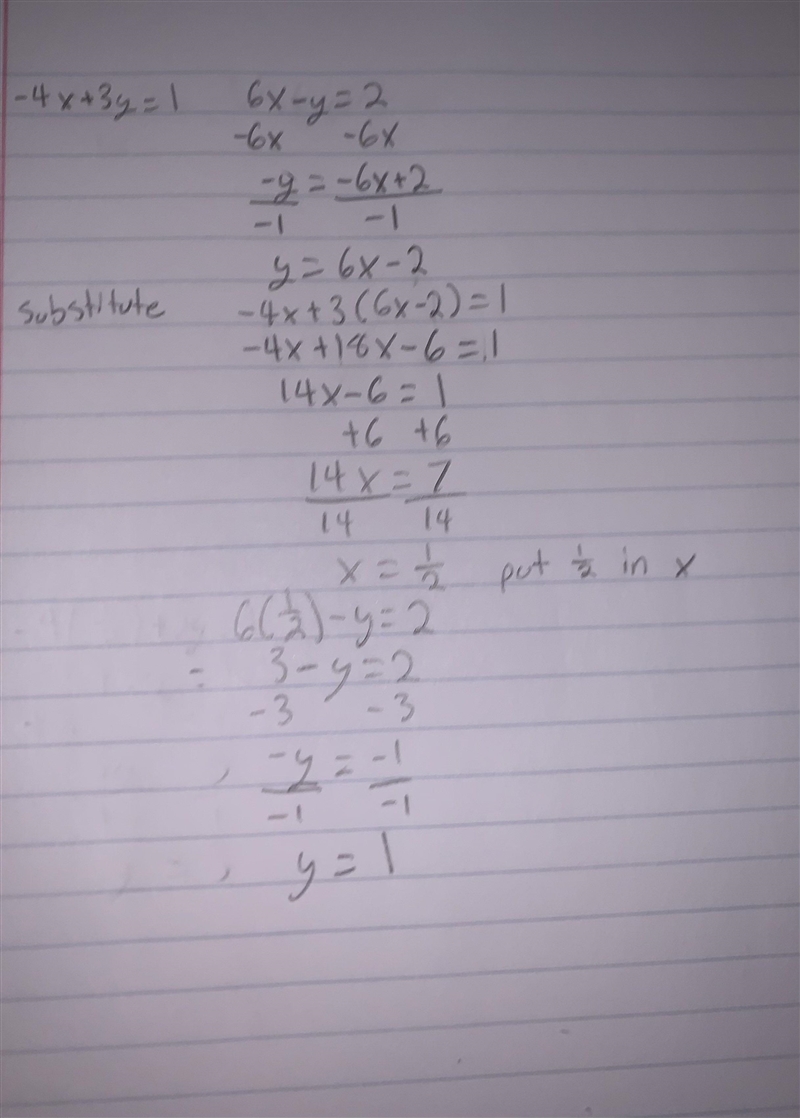 -4x+3y=1 6x-y=2
-6x -6x
-y = -6x+2
-1 -1
y = 6x-2
substitute -4x+3(6x-2)=1
-4x+18x-6=1
14x-6=1
+6 +6
14x = 7
14 14
x = 1/2 put 1/2 in x
6(1/2)-y=2
= 3-y=2
-3 -3
-y = -1
-1 -1
y = 1